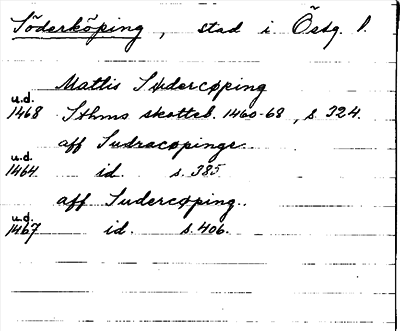 Söderköping, stad i Östg. P.
Mattis Sudercøping
u.d.
1468 Sthms skotteb. 1460-68, s 324.
aff Sudracøpinge
u.d.
1464 id. s. 385
aff Sudercøping.
u.d.
1467 id. s. 406.